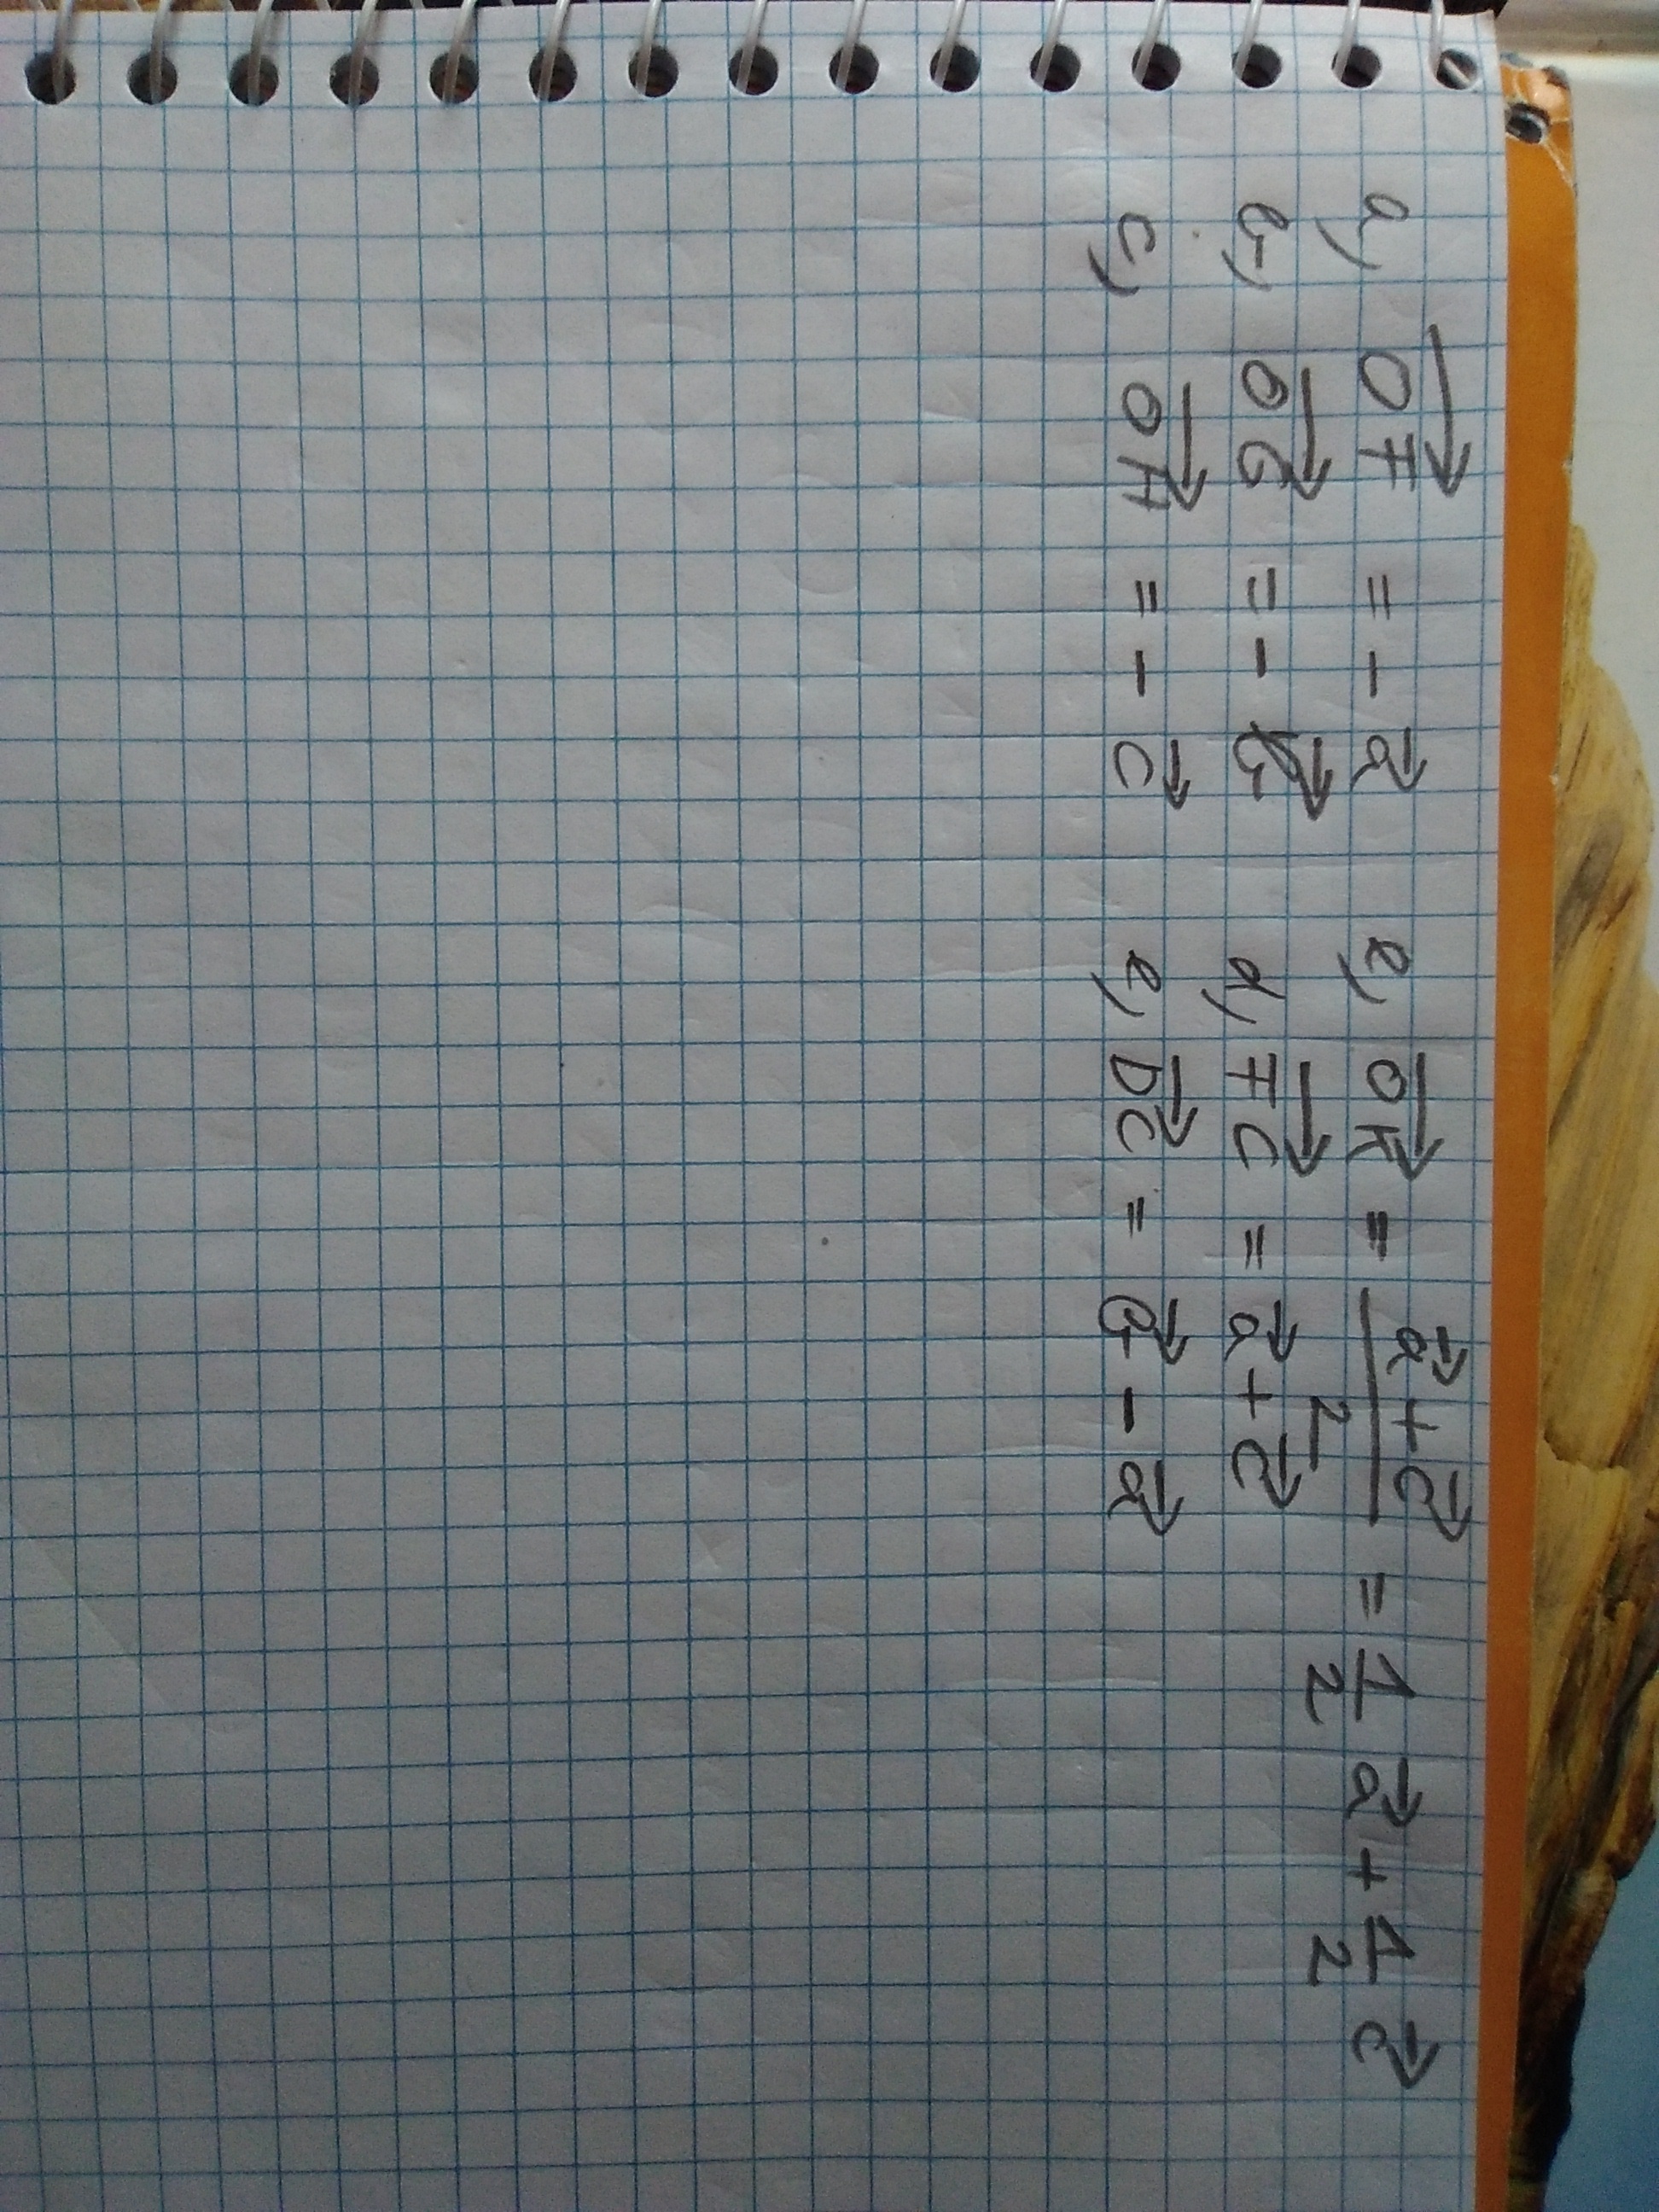 a) \vec{OF} = - \vec{a}
b) \vec{OG} = - \vec{b}
c) \vec{OH} = - \vec{c}
e) \vec{OK} = \frac{\vec{a} + \vec{c}}{2} = \frac{1}{2} \vec{a} + \frac{1}{2} \vec{c}
d) \vec{FC} = \vec{a} + \vec{c}
e) \vec{DC} = \vec{b} - \vec{a}